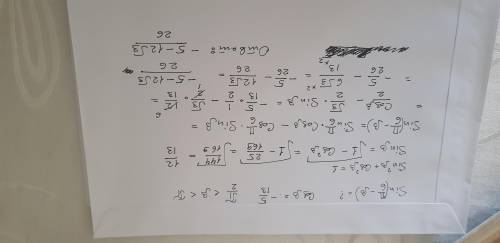 Sin(π/6 - β) = ? Cos β = - 5/13 π/2 < β < π
Sin²β + Cos²β = 1
Sin β = √(1 - Cos²β) = √(1 - 25/169) = √(144/169) = 12/13
Sin(π/6 - β) = Sin π/6 · Cos β - Cos π/6 · Sin β =
= Cos β/2 - √3/2 · Sin β = - 5/13 · 1/2 - √3/2 · 12/13 =
= - 5/26 - 6√3/13 ×2 ×2 = - 5/26 - 12√3/26 = (-5-12√3)/26
Ответ: (-5-12√3)/26